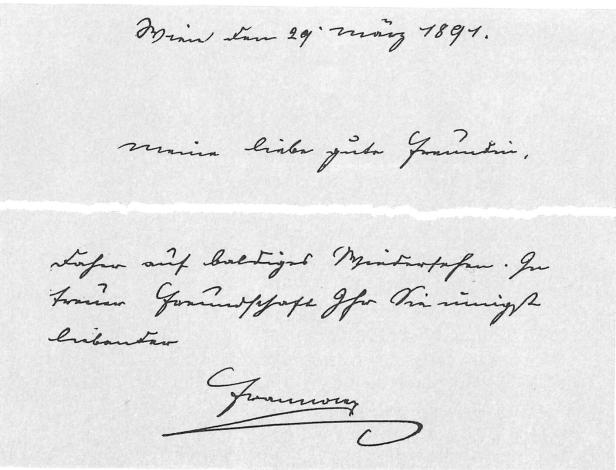 Wien den 29. März 1891.
Meine liebe gute Freundin,
daher auf baldiges Wiedersehen. In
treuer Freundschaft Ihr Sie innigst
liebender